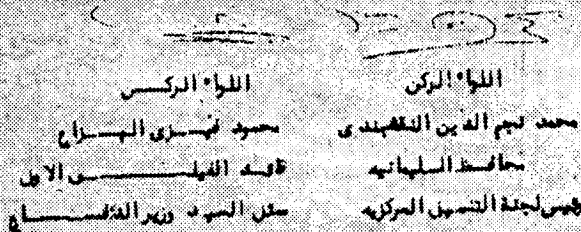 اللواء الركن
محمد نجم الدين النقشبندى
محافظ السليمانيه
رئيس لجنة التنسيق المركزيه
اللواء الركن
محمود فيزى الهزاع
قائد الفيلق الاول
ممثل السيد وزير الدفاع